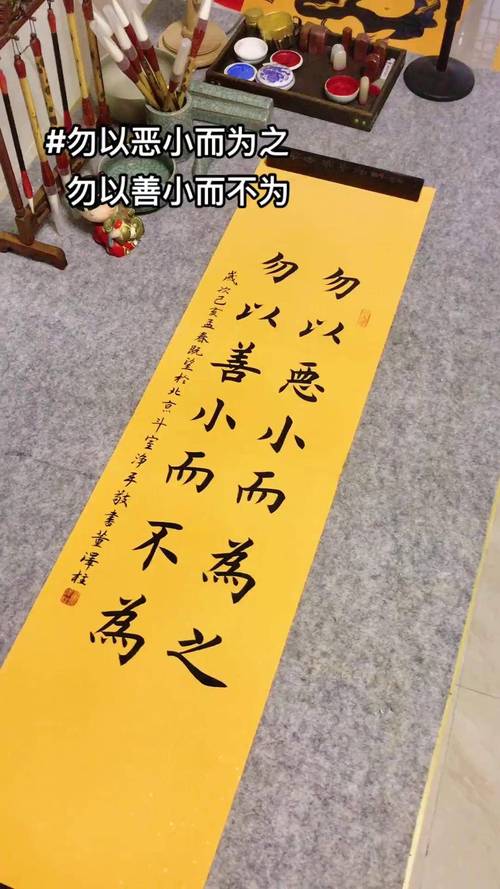 #勿以恶小而为之
勿以善小而不为
勿以恶小而為之
勿以善小而不為
歲次己亥孟春既望於北京斗室净手敬書董澤柱